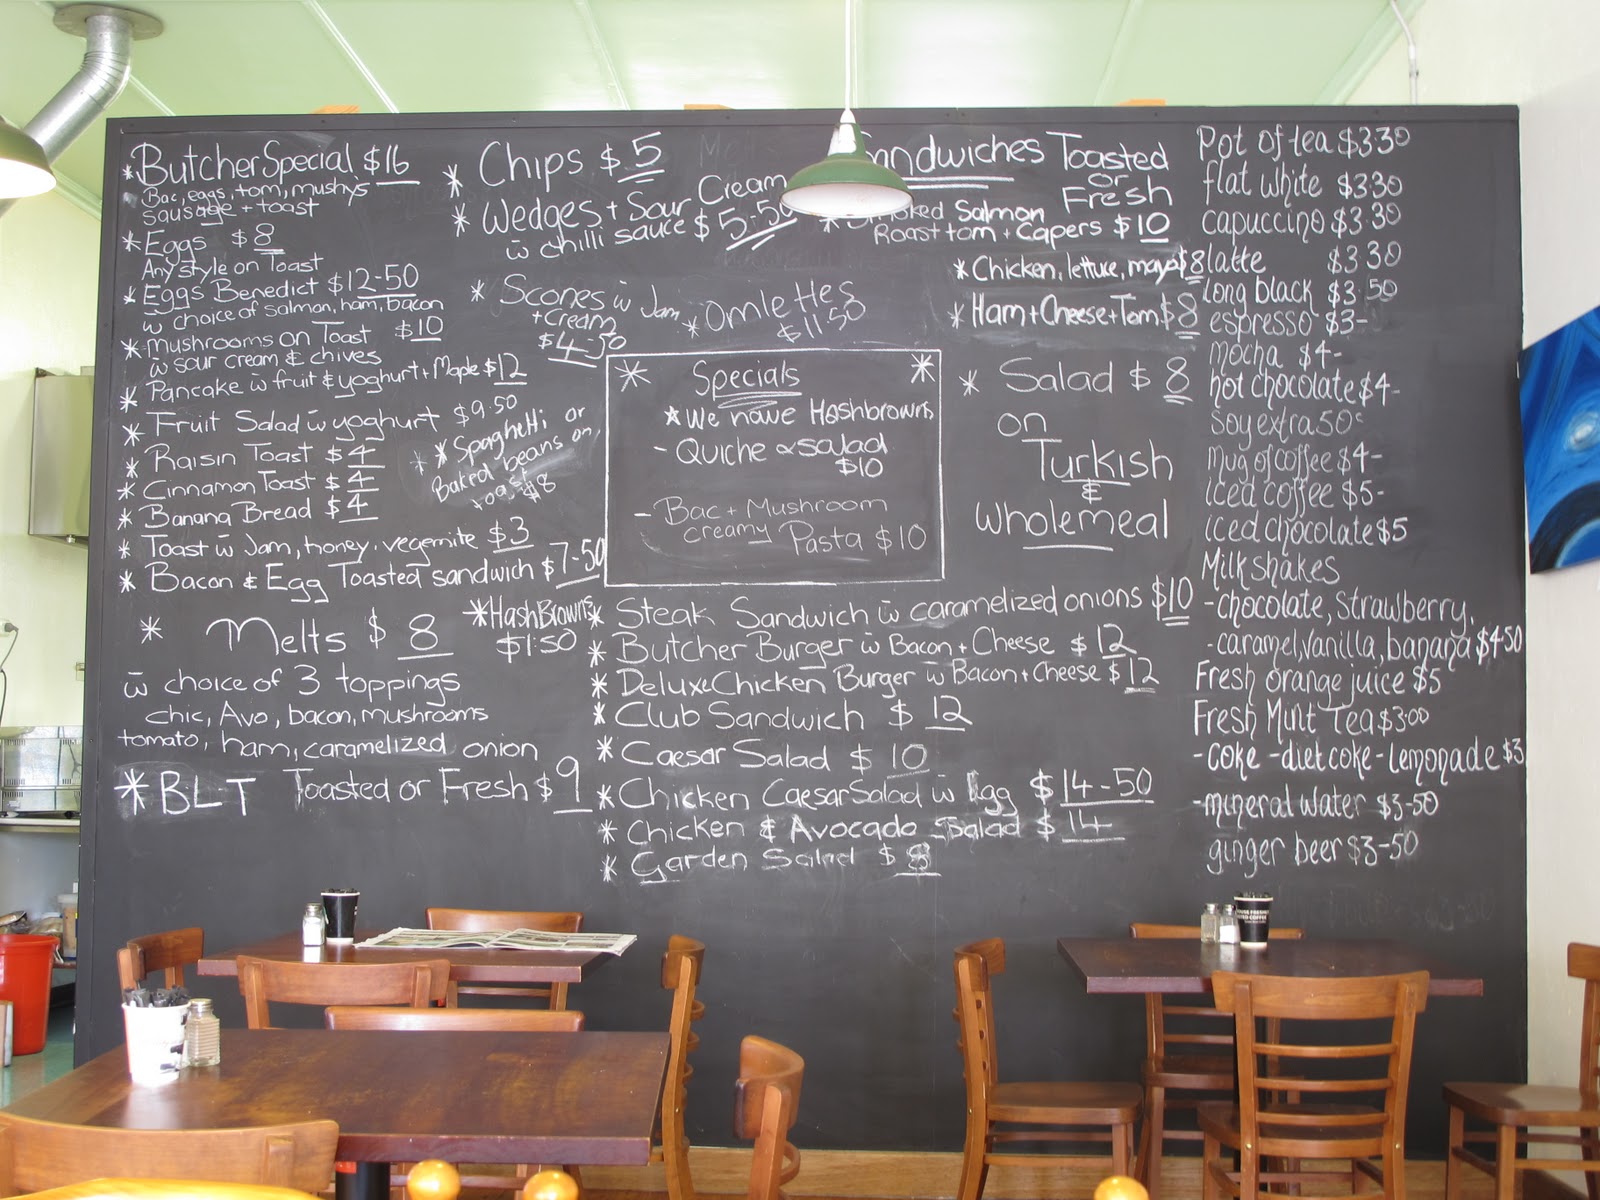 *Butcher Special $16
Bac, eggs, tom, mushys
sausage + toast
*Eggs $8
Any style on Toast
*Eggs Benedict $12-50
w̄ choice of salmon, ham, bacon
*mushrooms on Toast $10
w̄ sour cream & chives
*Pancake w̄ fruit & yoghurt + Maple $12
*Fruit Salad w̄ yoghurt $9.50
*Raisin Toast $4
*Cinnamon Toast $4
*Banana Bread $4
*Toast w̄ Jam, honey, vegemite $3
*Bacon & Egg Toasted sandwich $7-50
**Spaghetti or
Baked beans on
toast $8
*Melts $8
w̄ choice of 3 toppings
chic, Avo, bacon, mushrooms
tomato, ham, caramelized onion
*BLT Toasted or Fresh $9
*HashBrowns
$1.50
*Chips $5
*Wedges + Sour Cream
w̄ chilli sauce $5-50
*Scones w̄ Jam
+ Cream
$4-50
*Omlettes
$11.50
Specials
*We have Hashbrowns
- Quiche & salad
$10
- Bac + Mushroom
creamy Pasta $10
*Steak Sandwich w̄ caramelized onions $10
*Butcher Burger w̄ Bacon + Cheese $12
*Deluxe Chicken Burger w̄ Bacon + Cheese $12
*Club Sandwich $12
*Caesar Salad $10
*Chicken Caesar Salad w̄ Egg $14-50
*Chicken & Avocado Salad $14-
*Garden Salad $8
Toasted
or
Fresh
Salmon
Roast tom + Capers $10
*Chicken, lettuce, mayo $8
*Ham + Cheese + Tom $8
*Salad $8
on
Turkish
&
wholemeal
Pot of tea $3.30
flat white $3.30
capuccino $3.30
latte $3.30
long black $3.50
espresso $3-
mocha $4-
hot chocolate $4-
Soy extra 50c
Mug of coffee $4-
iced coffee $5-
iced chocolate $5
Milkshakes
-chocolate, Strawberry,
-caramel, vanilla, banana $4.50
Fresh orange juice $5
Fresh Mint Tea $3.00
-coke -diet coke -Lemonade $3
-mineral water $3-50
ginger beer $3-50